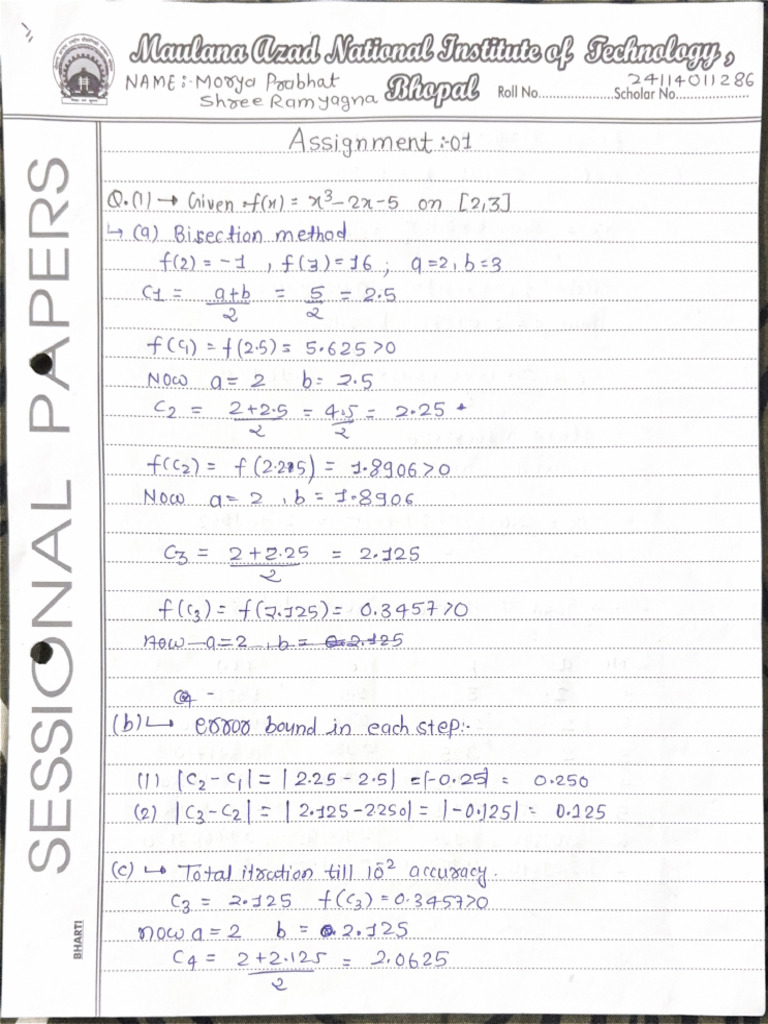 Maulana Azad National Institute of Technology,
Bhopal
NAME:- Morya Prabhat
Shree Ramyagna
Roll No.
24114011286
Scholar No.
Assignment:-01
Q.(1) → Given f(x) = x³-2x-5 on [2,3]
↳ (a) Bisection method
f(2) = -1 , f(3) = 16 ; a=2, b=3
C1 = a+b/2 = 5/2 = 2.5
f(C1) = f(2.5) = 5.625 >0
Now a= 2 b= 2.5
C2 = 2+2.5/2 = 4.5/2 = 2.25
f(C2) = f(2.25) = 1.8906>0
Now a= 2 , b= 1.8906
C3 = 2+2.25/2 = 2.125
f(C3) = f(2.125) = 0.3457>0
now a=2 , b= 2.125
C4 =
(b)↳ error bound in each step:-
(1) |C2-C1| = |2.25-2.5| = |-0.25| = 0.250
(2) |C3-C2| = |2.125-2250| = |-0.125| = 0.125
(c) ↳ Total itration till 10⁻² accuracy.
C3 = 2.125 f(C3) = 0.3457>0
now a=2 b = 2.125
C4 = 2+2.125/2 = 2.0625
SESSIONAL PAPERS
BHARTI